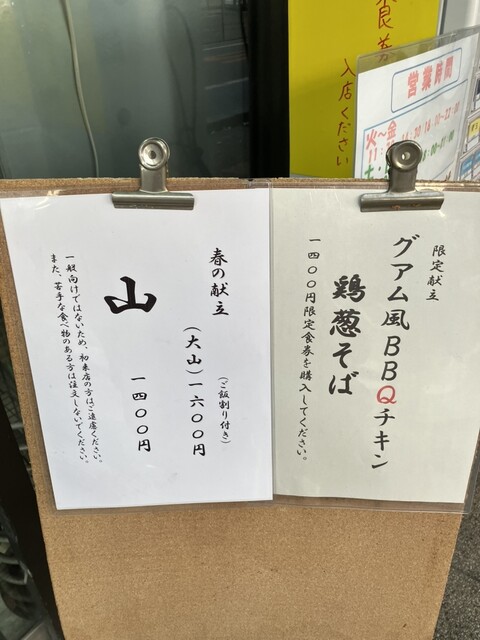 限定献立
グアム風BBQチキン
鶏葱そば
一四〇〇円限定食券を購入してください。
春の献立
(ご飯割り付き)
(大山)一六〇〇円
山
一四〇〇円
一般向けではないため、初来店の方はご遠慮ください。
また、苦手な食べ物のある方は注文しないでください。
入店ください
営業時間
火〜金